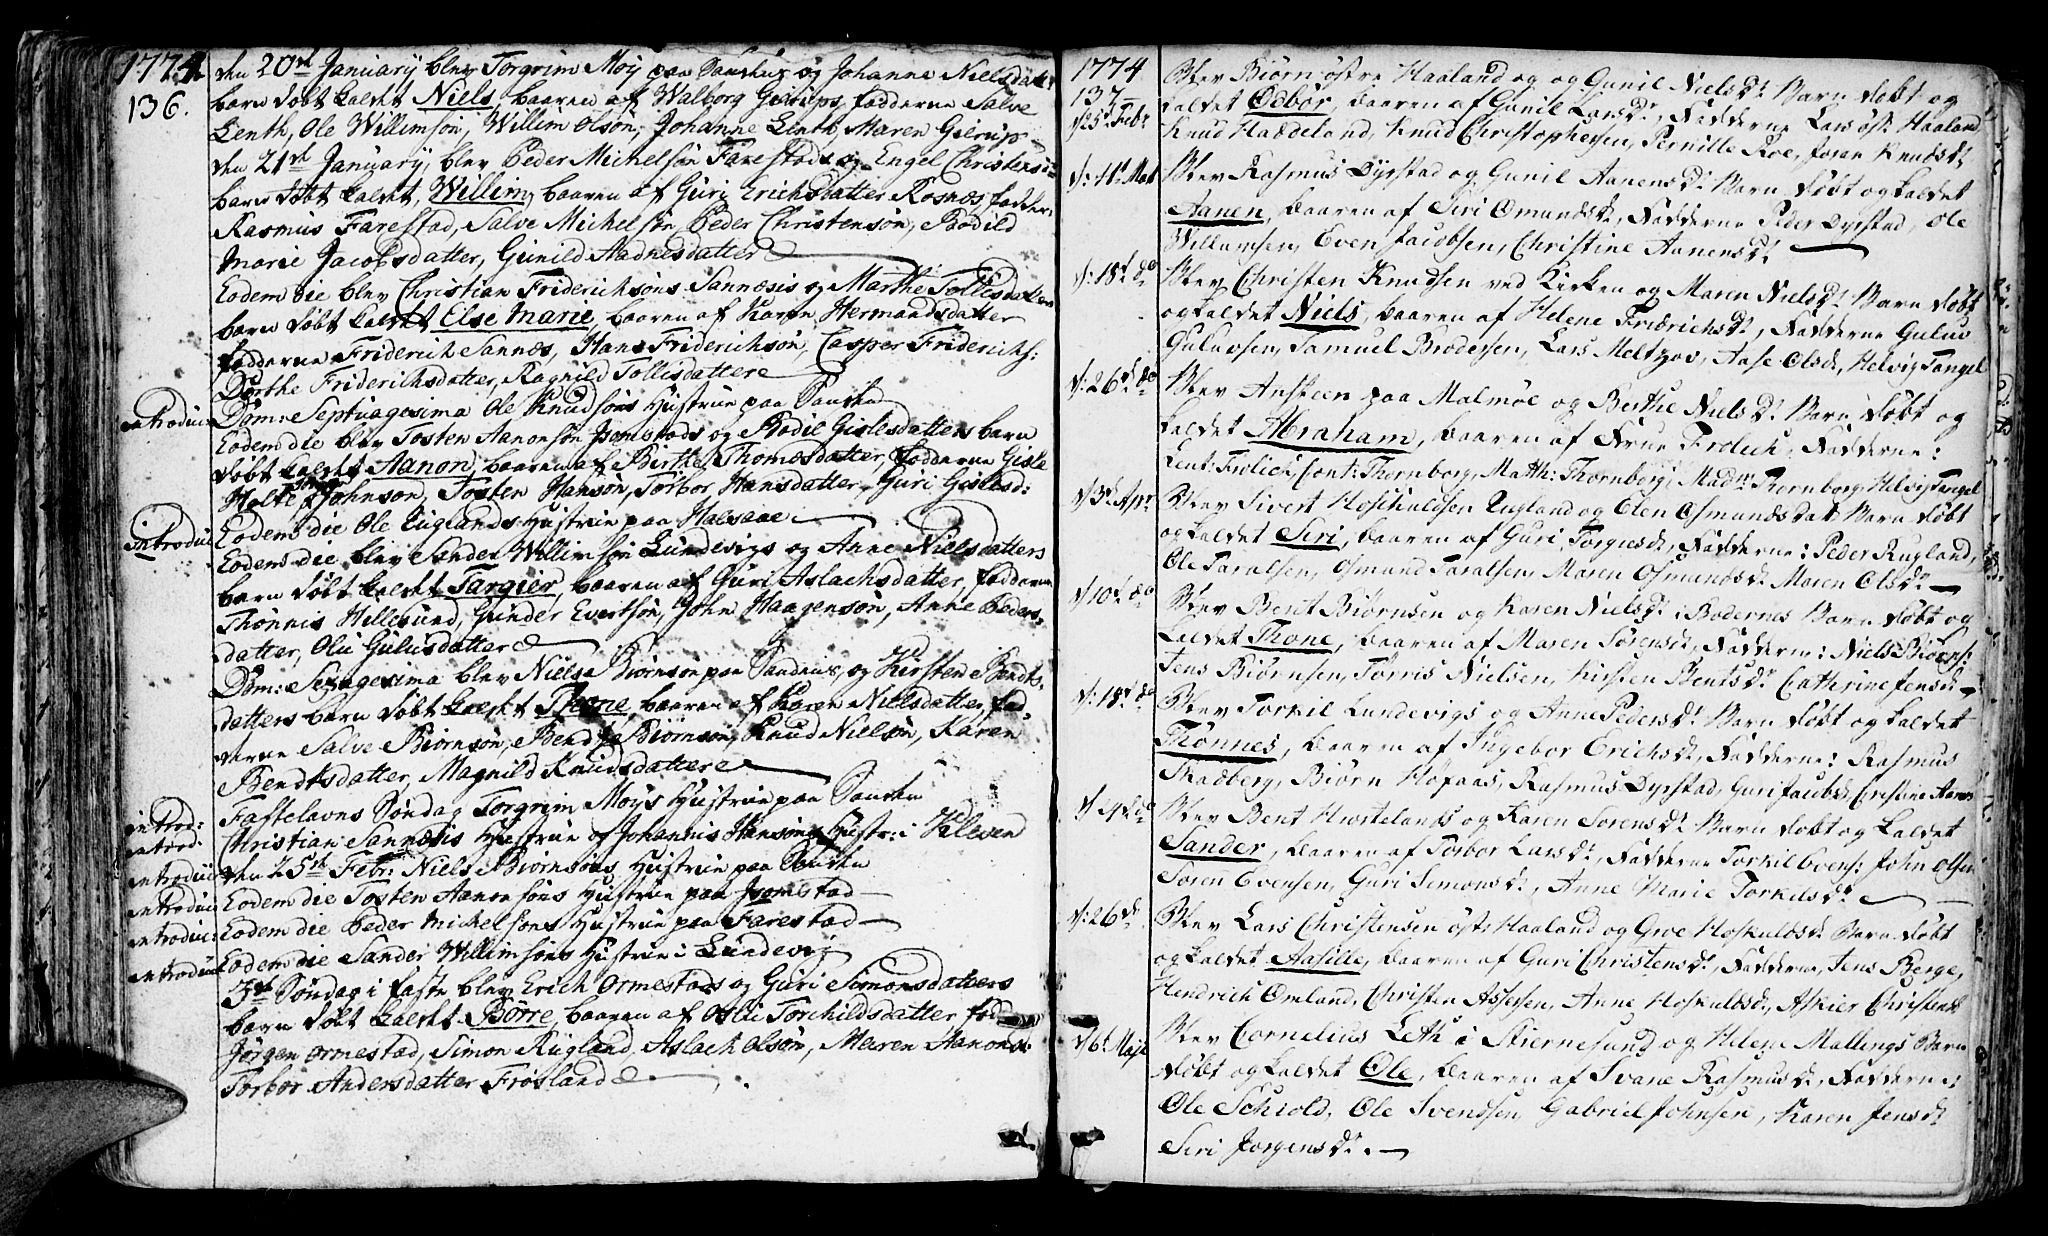 1774
136.
den 20de January blev Torgrim Moy paa Sanshus og Johanne Nielsdatters
barn döbt kaldet Niels, baaren af Walborg Gierups, fadderne Salve
Lenth, Ole Willimsön, Willim Olsön, Johanne Lenth, Maren Gierup
den 21de January blev Peder Michelsön Farestads og Engel Christens
barn döbt kaldet, Willim, baaren af Guri Erichsdatter Rosnæs fadder:
Rasmus Farestad, Salve Michelsön, Peder Christensön, Bodild
Marie Jacobsdatter, Gunild Aadnesdatter
Eodem die blev Christian Friderichsöns Sannæsis og Marthe Tollisdatters
barn döbt kaldet Else Marie, baaren af Karen Hermandsdatter
fadderne Friderich Sannæs, Hans Friderichsön, Casper Friderichs:
Dorthe Friderichsdatter, Ragnild Tollisdatter
introduc: Dom: Septuagesima Ole Knudsöns Hustrue paa
Eodem die blev Tosten Aanonsön Jvomstads og Bodil Gislesdatters barn
döbt kaldet Aanon, baaren af Birthe Thomæsdatter, fadderne Gisle
Holte Johnson, Tosten Hansön, Torbor Hansdatter, Guri Gislesd:
introduc: Eodem die Ole Ruglands Hustrue paa Halsaae
Eodem die blev Sander Willimsön Lundevigs og Anne Nielsdatters
barn döbt kaldet Targier, baaren af Guri Aslachsdatter, fadderne
Thönnis Hillesund, Gunder Evertsön, John Haagensön, Anne Peders,
datter, Olu Gulusdatter
Dom: Sexagesima blev Niels Biörnsön paa og Kirsten Bendts,
datters barn döbt kaldet Thone, baaren af Karen Nielsdatter, fad,
derne Salve Biörnsön, Bendt Biörnsön, Knud Nielsön, Karen
Bendtsdatter, Magnild Knudsdatter
introd: Fastelavns Söndag Torgrim Moys Hustrue paa
introd: Christian Sannæsis Hustrue og Johannis Hansöns Hustr: i Kleven
introduc den 25de Febr: Niels Biörnsöns Hustrue paa
introduc Eodem die Tosten Aanonsöns Hustrue paa Jvomstad
introduc: Eodem die Peder Mickelsöns Hustrue paa Farestad
introduc Eodem die Sander Willimsöns Hustrue i Lundevig
3de Söndag i faste blev Erich Ormestads og Guri Simonsdatters
barn döbt kaldet Börre, baaren af Olu Torchildsdatter, fad
Jörgen Ormestad, Simon Rugland, Aslach Olsön, Maren Aanons:
Torbor Andersdatter Frösland
1774
137
d. 25 Febr Blev Biörn östre Haaland og og Gunil Niels Dr Barn döbt og
kaldet Ödbör, baaren af Gunil Lars Dr, Fadderne Lars öst: Haaland
Knud Haddeland, Knud Christophersen, Pernille Roe, Joran Knuds Dr
d: 11t Mart Blev Rasmus Dyrstad og Gunil Aanens Dr Barn döbt og kaldet
Aanen, baaren af Siri Omunds Dr, Fadderne Peder Dyrstad, Ole
Willumsen, Even Jacobsen, Christine Aanens Dr
d: 18t do Blev Christen Knudsen ved Kirken og Maren Niels Dr Barn döbt
og kaldet Niels, baaren af Helene Fridrichs Dr, Fadderne Guluv
Guluvsen, Samuel Brodersen, Lars Meltzov, Aase Olsd, Helvig Tangel
d: 26de do Blev Ansteen paa Malmöe og Berthe Niels Dr Barn döbt og
kaldet Abraham, baaren af Frue Frolich, Fadderne:
Lent: Frolich, Cont: Thornborg, Matth: Thornborg, Madm Thornborg, Helvig Tangel
d 3t Apr Blev Sivert Hoskuldsen Rugland og Elen Osmunds datt Barn döbt
og kaldet Siri, baaren af Guri Torgiusd, Fadderne: Peder Rugland,
Ole Taraldsen, Osmund Taralsen, Maren Osmunds Dr Maren Ols Dr
d 10t do Blev Bent Biörnsen og Karen Niels Dr: Bodernes Barn döbt og
kaldet Thone, baaren af Maren Sörens Dr, Fadderne: Niels Biörns:
Jens Biörnsen, Torris Nielsen, Kirsten Bents Dr Cathrine Jensd
d: 18t do Blev Torkil Lundevigs og Anne Peders Dr Barn döbt og kaldet
Thönnes, baaren af Ingebor Erichs Dr, Fadderne: Rasmus
Stadberg, Biörn Höfaas, Rasmus Dyrstad, Guri Jacobsd, Christine Aanens
d 24de do Blev Bent Hortelands og Karen Sorens Dr Barn döbt og kaldet
Sander, baaren af Torbor Lars Dr, Fadderne Torkil Evens: John Olsen
Sören Evensen, Guri Simons Dr, Anne Marie Torkilds Dr
d: 26de Blev Lars Christensen öst: Haaland og Groe Hoskulds Dr Barn döbt
og kaldet Aasille, baaren af Guri Christens Dr, Fadderne, Jens Berge,
Hendrich Omland, Christen Assersen, Anne Hoskulds Dr, Askier Christens
d 6t Maji Blev Cornelius Leth i Stiernesund og Helene Mallings Barn
döbt og kaldet Ole, baaren af Svane Rasmus Dr, Fadderne:
Ole Schiold, Ole Svendsen, Gabriel Johnsen, Karen Jens Dr
Siri Jorgens Dr.